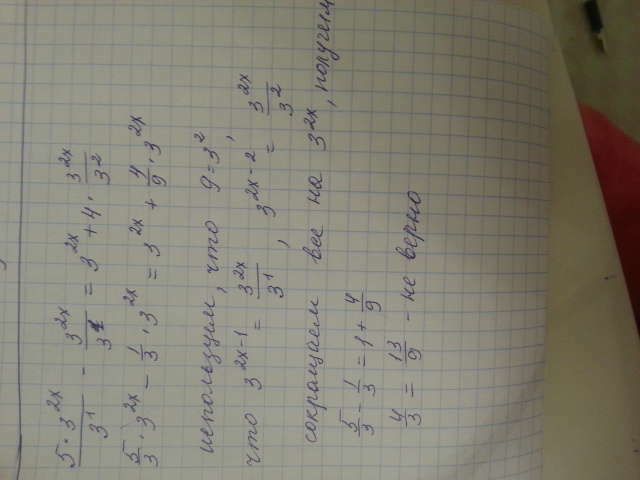 5·3^{2x}/3^1 - 3^{2x}/3^1 = 3^{2x} + 4·3^{2x}/3^2
5/3·3^{2x} - 1/3·3^{2x} = 3^{2x} + 4/9·3^{2x}
используем, что 9=3^2,
что 3^{2x-1} = 3^{2x}/3^1, 3^{2x-2} = 3^{2x}/3^2
сокращаем все на 3^{2x}, получим
5/3 - 1/3 = 1 + 4/9
4/3 = 13/9 - не верно